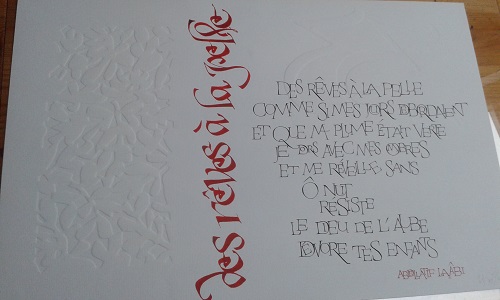 des rêves à la pelle
DES RÊVES À LA PELLE
COMME SI MES NUITS DEBORDAIENT
ET QUE MA PLUME ÉTAIT VERTE
JE DORS AVEC MES OMBRES
ET ME RÉVEILLE SANS
Ô NUIT
RESISTE
LE DIEU DE L'AUBE
DEVORE TES ENFANTS